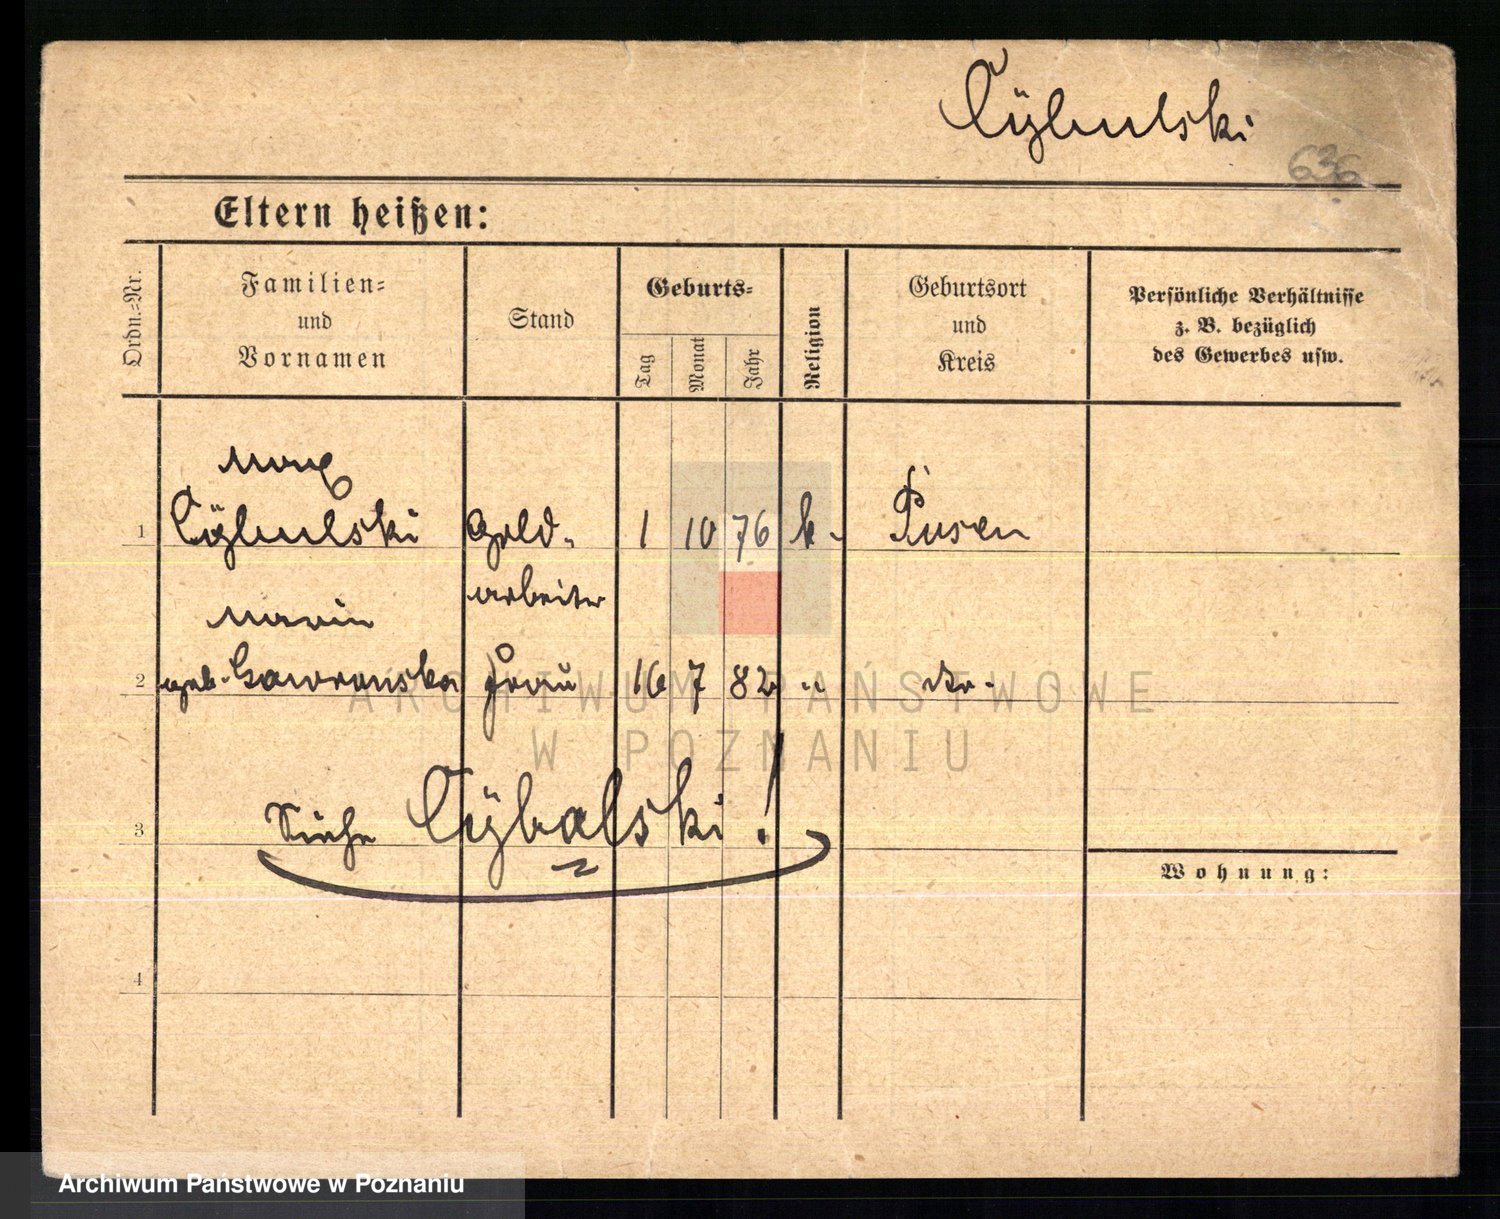 Cÿbulski
636
Eltern heißen:
Ordn.-Nr.
Familien-
und
Vornamen
Stand
Geburts-
Tag
Monat
Jahr
Religion
Geburtsort
und
Kreis
Persönliche Verhältnisse
z. B. bezüglich
des Gewerbes usw.
Max
1 Cÿbulski Gold- 1 10 76 k. Posen
arbeiter
Maria
2 geb. Gawronska Frau 16 7 82 " do.
ARCHIWUM PAŃSTWOWE
W POZNANIU
3 Siehe Cÿbalski!
Wohnung:
4
Archiwum Państwowe w Poznaniu